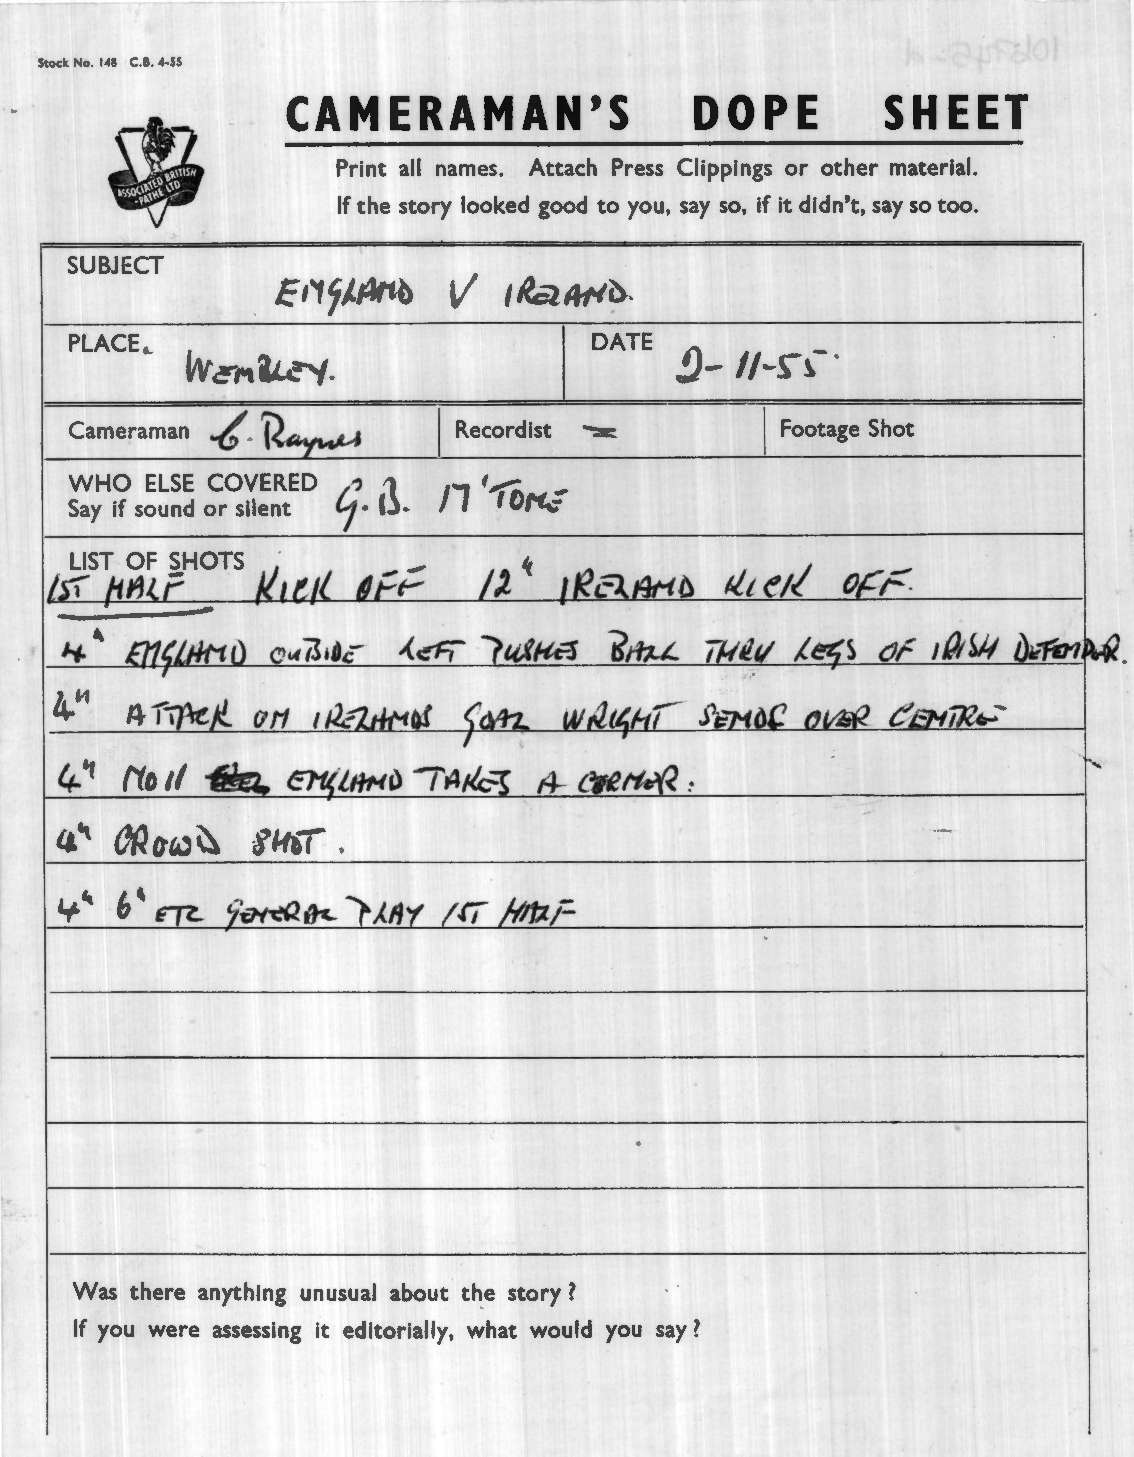 Stock No. 148 C.B. 4-55
CAMERAMAN'S DOPE SHEET
Print all names. Attach Press Clippings or other material.
If the story looked good to you, say so, if it didn't, say so too.
ASSOCIATED BRITISH
-PATHE LTD
SUBJECT
ENGLAND V IRELAND.
PLACE DATE
WEMBLEY. 2-11-55.
Cameraman C. Raynes Recordist Footage Shot
WHO ELSE COVERED
Say if sound or silent G.B. M'TONE
LIST OF SHOTS
1ST HALF KICK OFF 12" IRELAND KICK OFF.
4" ENGLAND OUTSIDE LEFT PUSHES BALL THRU LEGS OF IRISH DEFENDER.
4" ATTACK ON IRELANDS GOAL WRIGHT SENDS OVER CENTRE
4" No 11 ENGLAND TAKES A CORNER.
4" CROWD SHOT.
4" 6" ETC GENERAL PLAY 1ST HALF
Was there anything unusual about the story?
If you were assessing it editorially, what would you say?